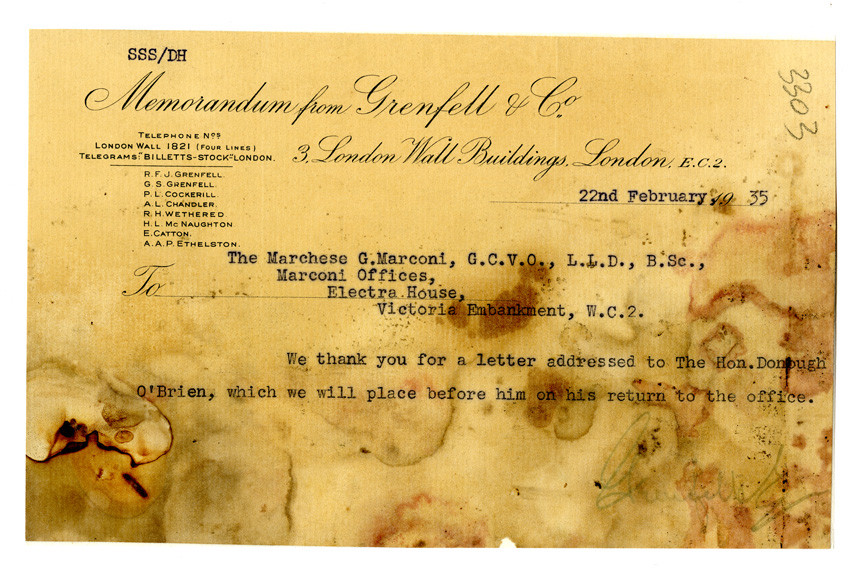 SSS/DH
3303
Memorandum from Grenfell & Co.
TELEPHONE Nos
LONDON WALL 1821 (FOUR LINES)
TELEGRAMS: "BILLETTS-STOCK-LONDON.
3, London Wall Buildings, London, E.C.2.
R.F.J. GRENFELL.
G.S. GRENFELL.
P.L. COCKERILL.
A.L. CHANDLER.
R.H. WETHERED
H.L. McNAUGHTON
E. CATTON.
A.A.P. ETHELSTON.
22nd February, 19 35
The Marchese G.Marconi, G.C.V.O., L.L.D., B.Sc.,
Marconi Offices,
To Electra House,
Victoria Embankment, W.C.2.
We thank you for a letter addressed to The Hon.Donough
O'Brien, which we will place before him on his return to the office.
Grenfell & Co